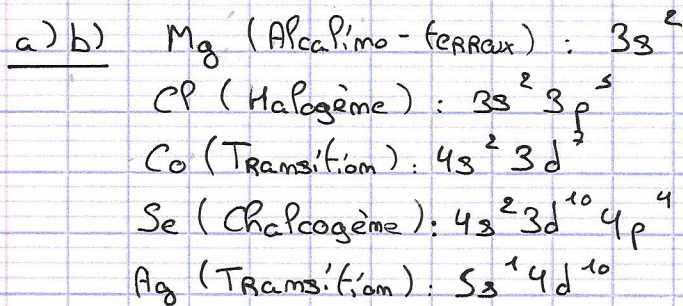 a) b) Mg (Alcalino-terreux) : 3s²
Cl (Halogène) : 3s² 3p⁵
Co (Transition) : 4s² 3d⁷
Se (Chalcogène) : 4s² 3d¹⁰ 4p⁴
Ag (Transition) : 5s¹ 4d¹⁰